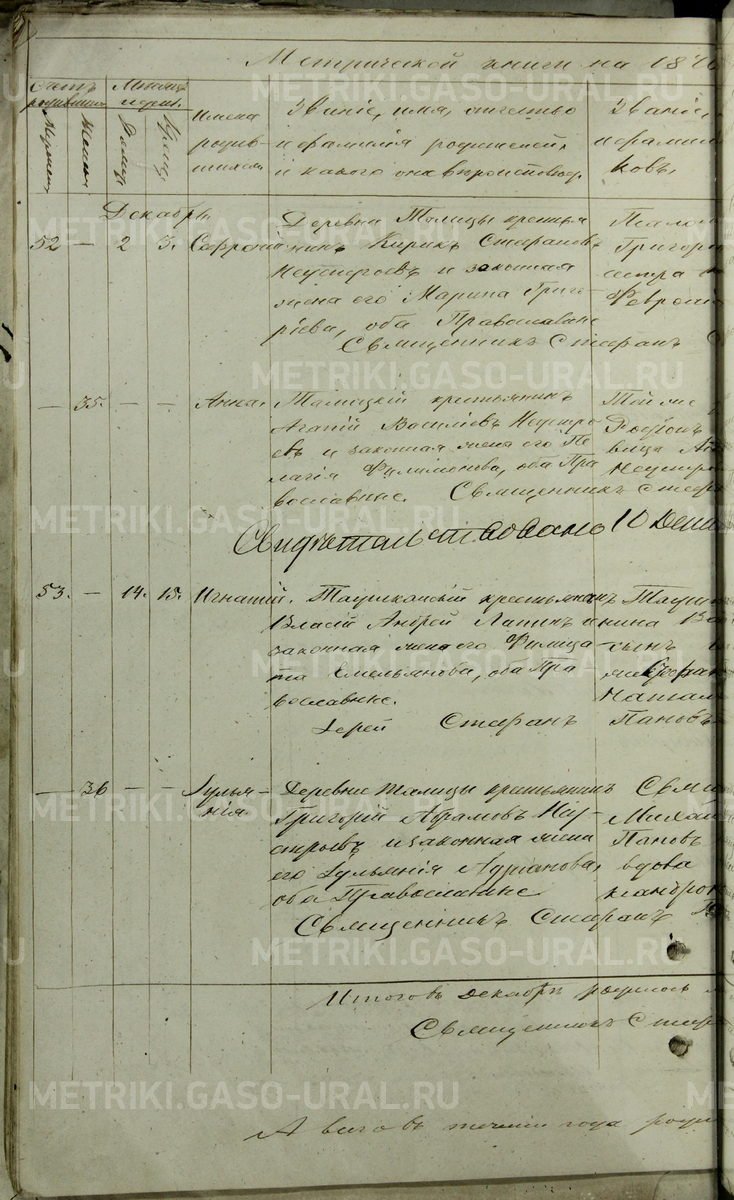 Метрической книги на 18
Счетъ родившихся
Мѣсяцъ и день
Имена родив-
шихся.
Званіе, имя, отчество
и фамилія родителей,
и какого они вѣроисповед.
Званіе,
и фамил
ковъ.
Мужеска
Женска
Рожд.
Крещ.
Декабрь.
52 — 2 3. Софроній
Деревни Талицы кресть-
янинъ Кирикъ Стефановъ
Неустроевъ и законная
жена его Марина Григо-
ріева, оба Православные
Священникъ Стефанъ
Григор
сестра
Феврон
— 35. — — Анна.
Талицкій крестьянинъ
Агапій Василіевъ Неустро
евъ и законная жена его Пе
лагія Филимонова, оба Пра
вославные. Священникъ Стеф
Той же
Родіон
вица
Неустро
Свидетельствовано 10 Дека
53. — 14. 15. Игнатій.
крестьянинъ
Власій Андреевъ Лапинъ и
законная жена его Филица
та Емельянова, оба Пра
вославные.
Іерей Стефанъ Поповъ
Натал
— 36 — — Іульа-
нія.
Деревни Талицы крестьянинъ
Григорій Абрамовъ Неу-
строевъ и законная жена
его Іульянія Адріанова,
оба Православные
Священникъ Стефанъ
Свящ
Михаи
Поповъ
вдова
Итого въ Декабрѣ родилось
Священникъ Стеф
А всего въ теченіи года роди
METRIKI.GASO-URAL.RU